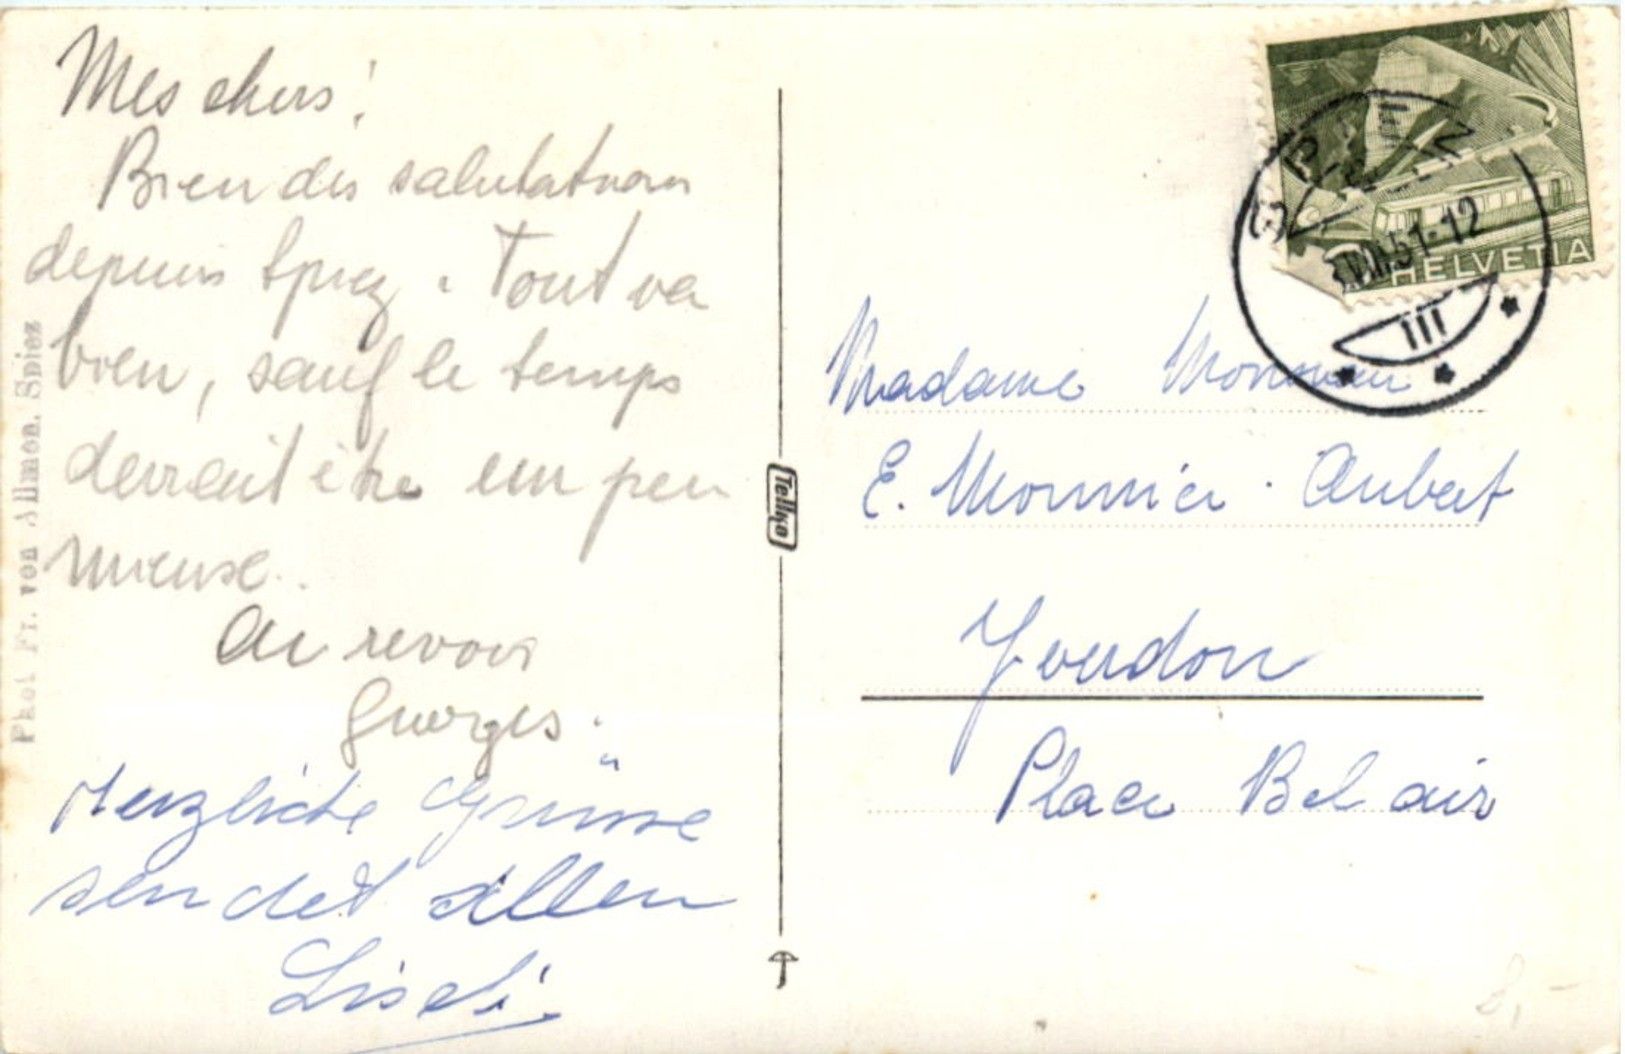 Mes chers!
Bien des salutations
depuis Spiez. Tout va
bien, sauf le temps
devrait être un peu
mieuse.
Au revoir
Georges.
Herzliche Grüsse
sendet allen
Liseli
Phot Fr. von Allmen. Spiez
Tellko
HELVETIA
SPIEZ
VIII.51-12
III
Madame Monsieur
E. Monnier-Aubert
Yverdon
Place Bel air
8,-